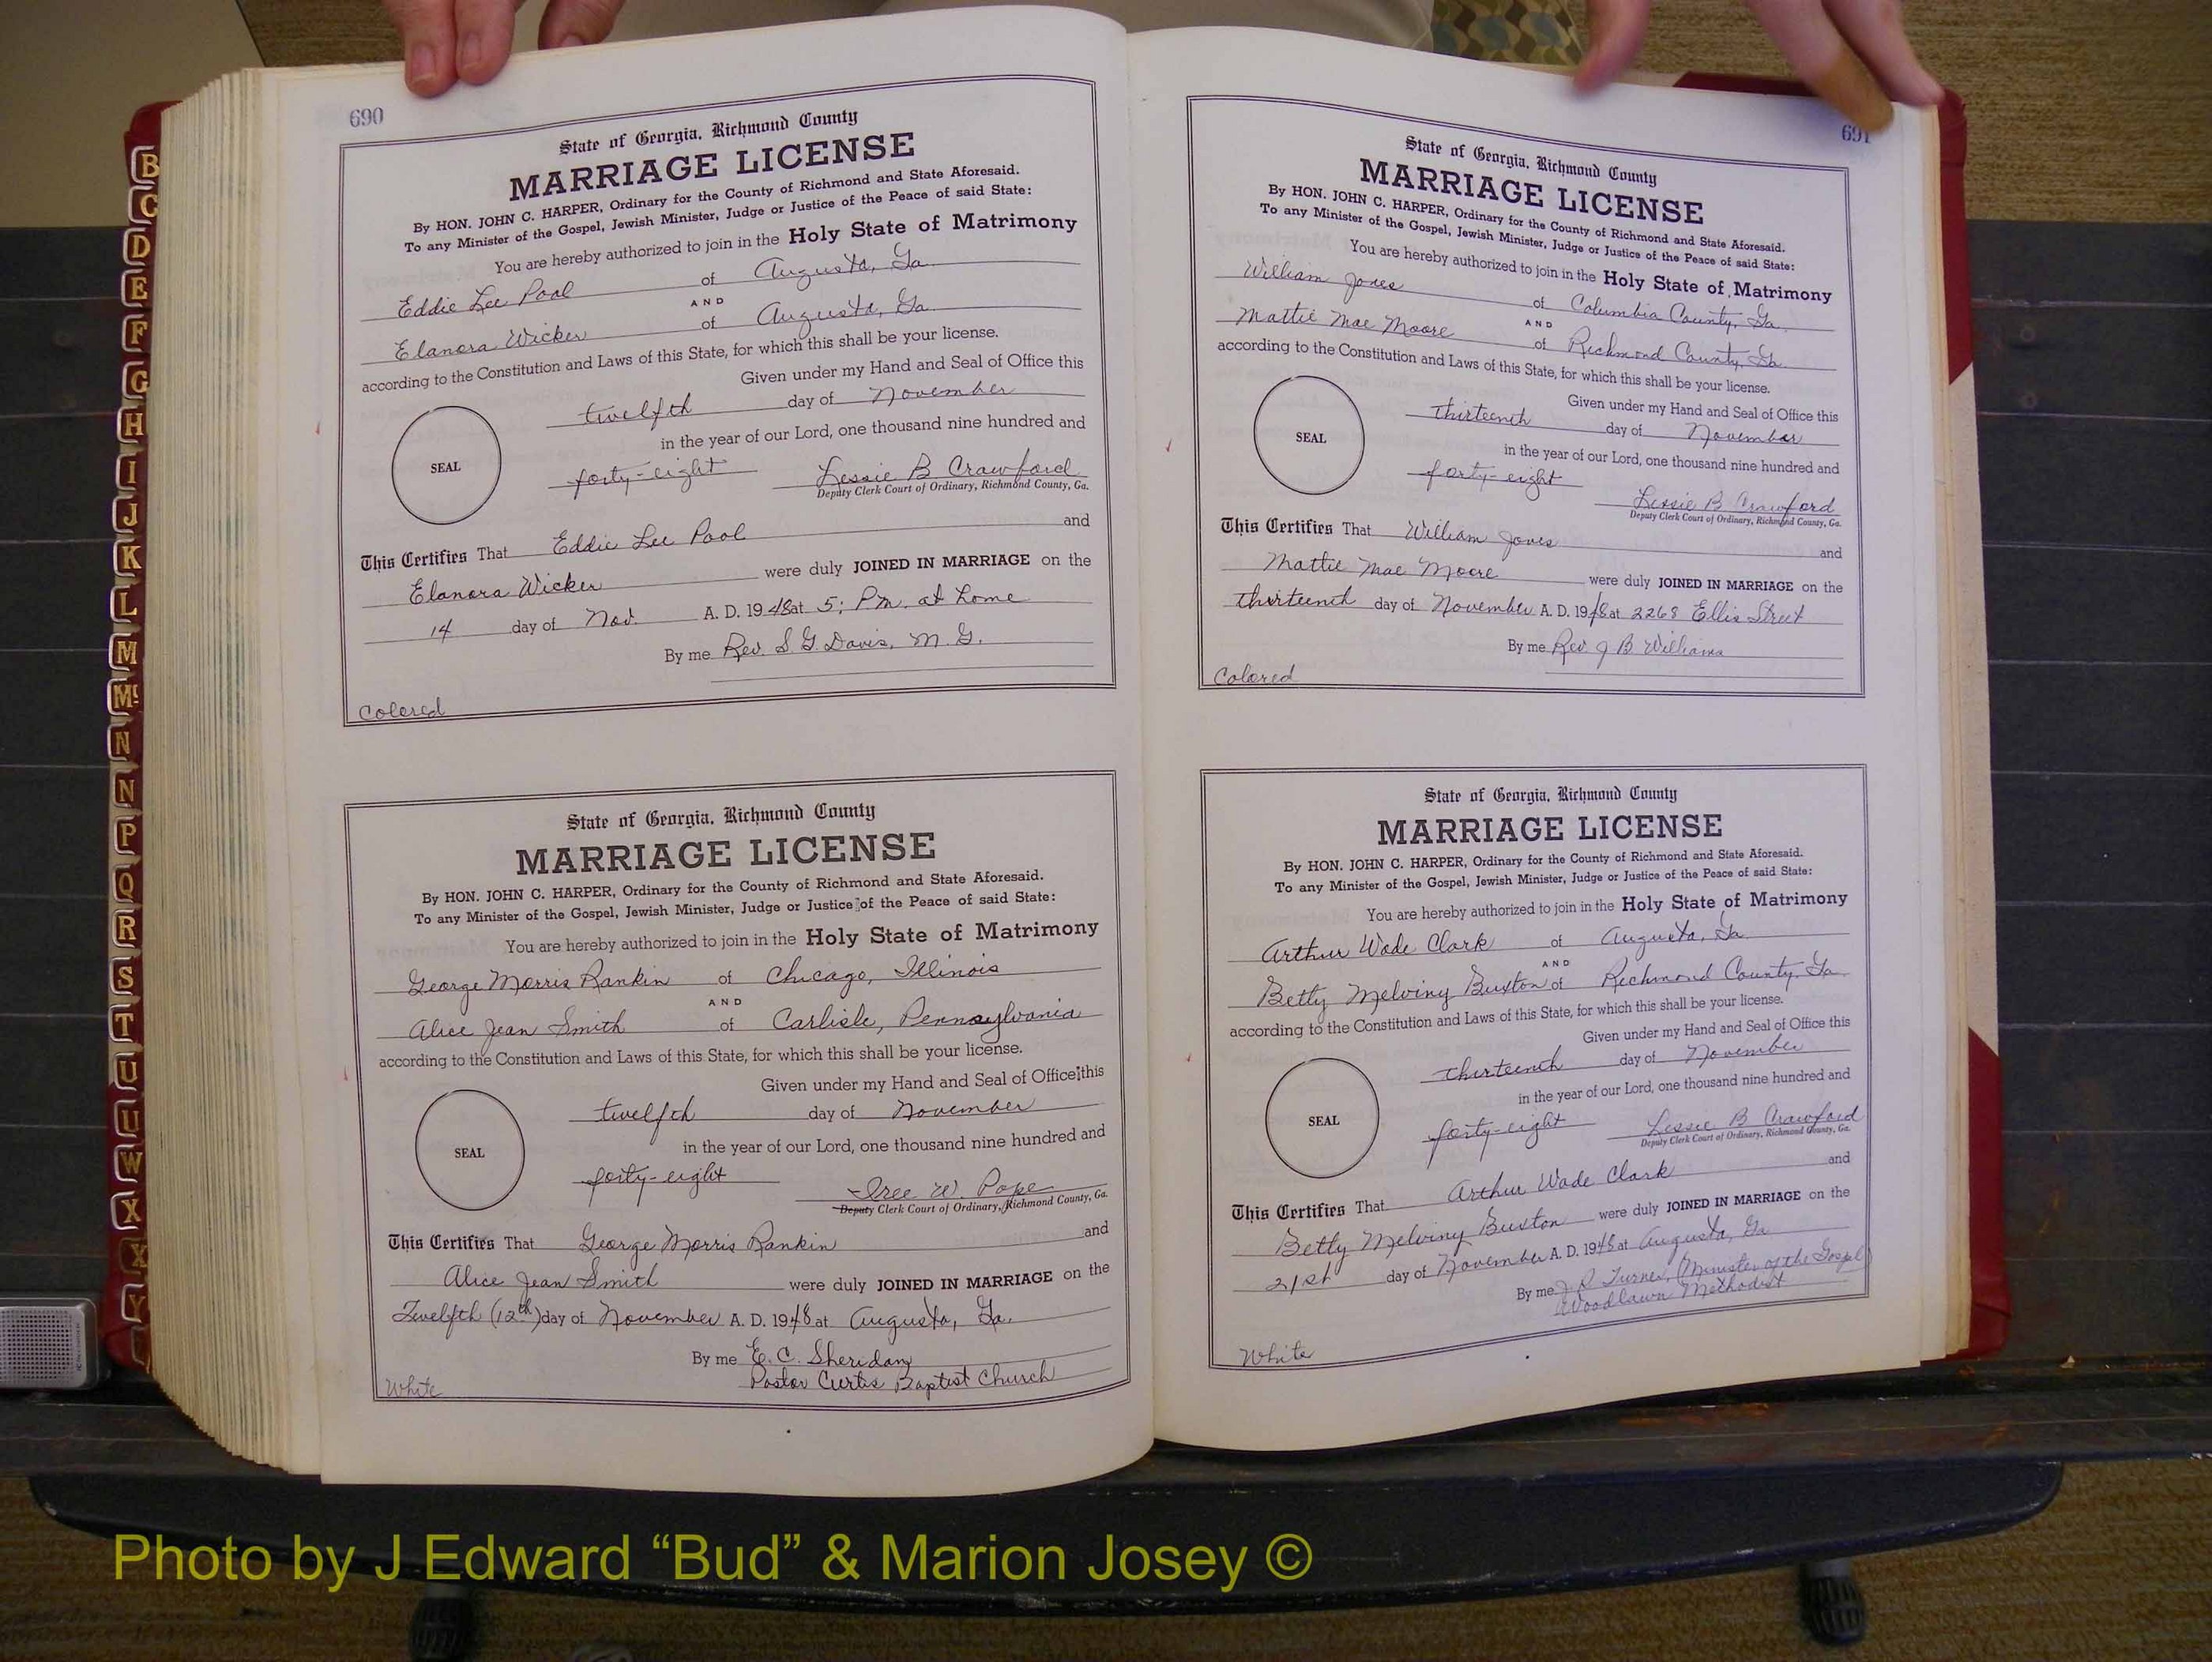 690
State of Georgia, Richmond County
MARRIAGE LICENSE
By HON. JOHN C. HARPER, Ordinary for the County of Richmond and State Aforesaid.
To any Minister of the Gospel, Jewish Minister, Judge or Justice of the Peace of said State:
You are hereby authorized to join in the Holy State of Matrimony
Eddie Lee Pool of Augusta, Ga.
AND
Elanora Wicker of Augusta, Ga.
according to the Constitution and Laws of this State, for which this shall be your license.
Given under my Hand and Seal of Office this
twelfth day of November
in the year of our Lord, one thousand nine hundred and
SEAL
forty-eight Lessie B Crawford
Deputy Clerk Court of Ordinary, Richmond County, Ga.
This Certifies That Eddie Lee Pool and
Elanora Wicker were duly JOINED IN MARRIAGE on the
14 day of Nov. A. D. 1948 at 5; P.m. at home
By me Rev. S. G. Davis, M. G.
Colored
State of Georgia, Richmond County
MARRIAGE LICENSE
By HON. JOHN C. HARPER, Ordinary for the County of Richmond and State Aforesaid.
To any Minister of the Gospel, Jewish Minister, Judge or Justice of the Peace of said State:
You are hereby authorized to join in the Holy State of Matrimony
George Morris Rankin of Chicago, Illinois
AND
Alice Jean Smith of Carlisle, Pennsylvania
according to the Constitution and Laws of this State, for which this shall be your license.
Given under my Hand and Seal of Office this
twelfth day of November
in the year of our Lord, one thousand nine hundred and
SEAL
forty-eight Iree W. Pope
Deputy Clerk Court of Ordinary, Richmond County, Ga.
This Certifies That George Morris Rankin and
Alice Jean Smith were duly JOINED IN MARRIAGE on the
Twelfth (12th) day of November A. D. 1948 at Augusta, Ga.
By me E. C. Sheridan
Pastor Curtis Baptist Church
White
691
State of Georgia, Richmond County
MARRIAGE LICENSE
By HON. JOHN C. HARPER, Ordinary for the County of Richmond and State Aforesaid.
To any Minister of the Gospel, Jewish Minister, Judge or Justice of the Peace of said State:
You are hereby authorized to join in the Holy State of Matrimony
William Jones of Columbia County, Ga.
AND
Mattie Mae Moore of Richmond County, Ga.
according to the Constitution and Laws of this State, for which this shall be your license.
Given under my Hand and Seal of Office this
thirteenth day of November
in the year of our Lord, one thousand nine hundred and
SEAL
forty-eight Lessie B Crawford
Deputy Clerk Court of Ordinary, Richmond County, Ga.
This Certifies That William Jones and
Mattie Mae Moore were duly JOINED IN MARRIAGE on the
thirteenth day of November A. D. 1948 at 2268 Ellis Street
By me Rev. J B Williams
Colored
State of Georgia, Richmond County
MARRIAGE LICENSE
By HON. JOHN C. HARPER, Ordinary for the County of Richmond and State Aforesaid.
To any Minister of the Gospel, Jewish Minister, Judge or Justice of the Peace of said State:
You are hereby authorized to join in the Holy State of Matrimony
Arthur Wade Clark of Augusta, Ga
AND
Betty Melviny Buxton of Richmond County, Ga.
according to the Constitution and Laws of this State, for which this shall be your license.
Given under my Hand and Seal of Office this
thirteenth day of November
in the year of our Lord, one thousand nine hundred and
SEAL
forty-eight Lessie B Crawford
Deputy Clerk Court of Ordinary, Richmond County, Ga.
This Certifies That Arthur Wade Clark and
Betty Melviny Buxton were duly JOINED IN MARRIAGE on the
21st day of November A. D. 1948 at Augusta, Ga
By me J. R. Turner, (Minister of the Gospel)
Woodlawn Methodist
White
B
C
D
E
F
G
H
I
J
K
L
M
Mc
N
N
P
Q
R
S
T
U
U
W
X
X
Y
Photo by J Edward “Bud” & Marion Josey ©